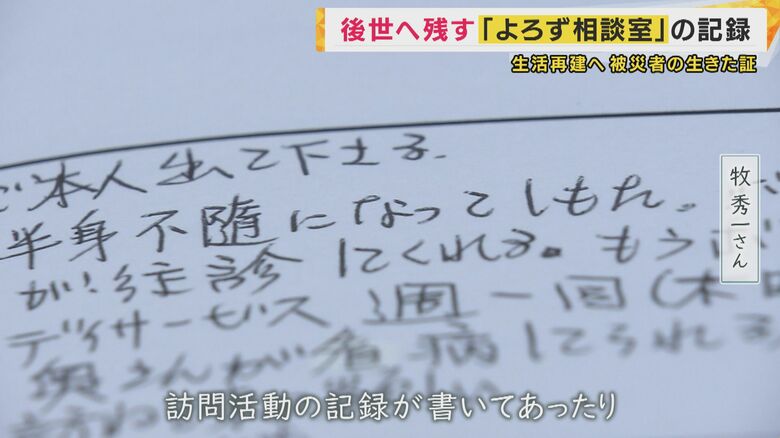 後世へ残す「よろず相談室」の記録
生活再建へ 被災者の生きた証
牧 秀一さん
ご本人出て下さる。
半身不随になってしもた。
が往診してくれる。もう
デイサービス 週一回(木
奥さんが看病してられる
訪問活動の記録が書いてあったり